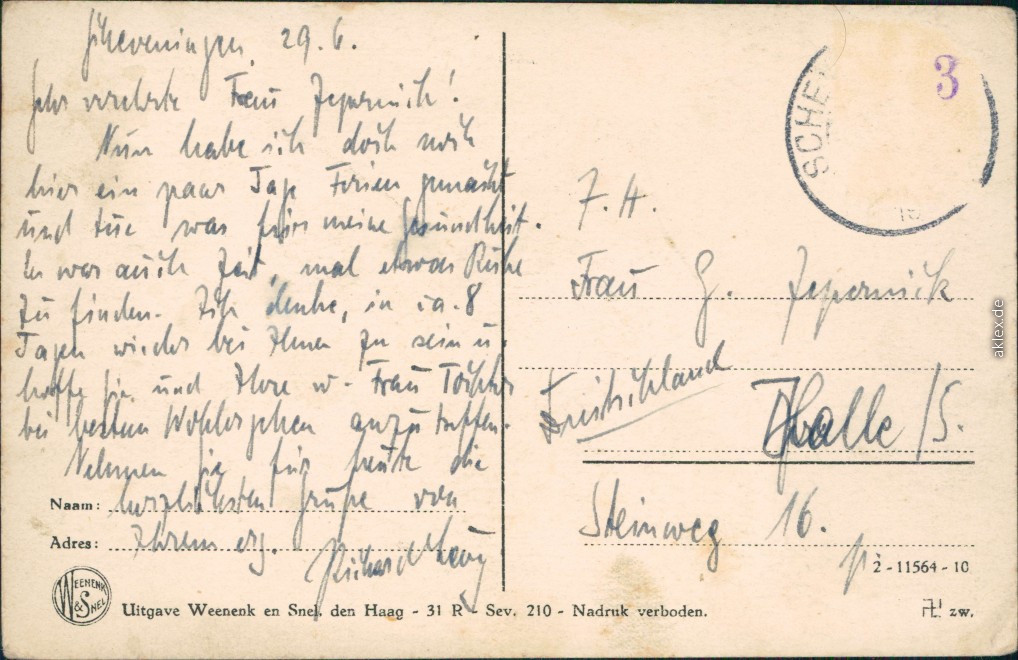 Scheveningen, 29.6.
Sehr verehrte Frau Jepernick!
Nun habe ich doch noch
hier ein paar Tage Ferien gemacht
und tue was für meine Gesundheit.
Es war auch Zeit, mal etwas Ruhe
zu finden. Ich denke, in ca. 8
Tagen wieder bei Ihnen zu sein u.
hoffe Sie und Ihre w. Frau Tochter
bei bestem Wohlergehen anzutreffen.
Nehmen Sie für heute die
herzlichsten Grüße von
Ihrem erg.
Richard
Naam:
Adres:
WEENENK & SNEL
Uitgave Weenenk en Snel, den Haag - 31 R - Sev. 210 - Nadruk verboden.
SCHE
3
F. H.
Frau G. Jepernick
Deutschland
Halle /S.
Steinweg 16.
2 - 11564 - 10
zw.
aklex.de